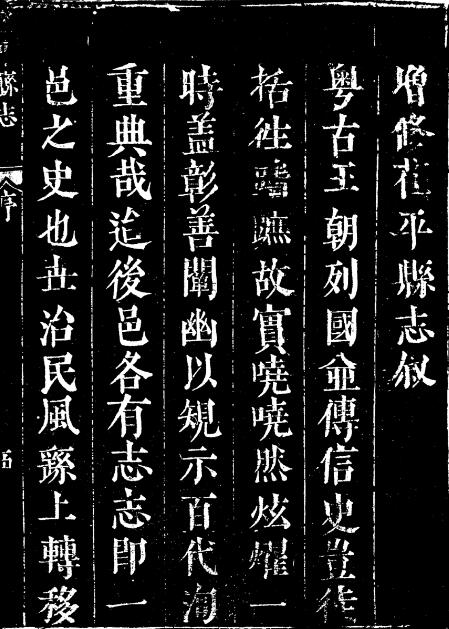 增修茌平縣志叙
粵古王朝列國並傳信史豈徒
括往踏蹠故實嘵嘵然炫燿一
時盖彰善闡幽以規示百代洵
重典哉迨後邑各有志志即一
邑之史也丗治民風繇上轉移
縣志 序 五